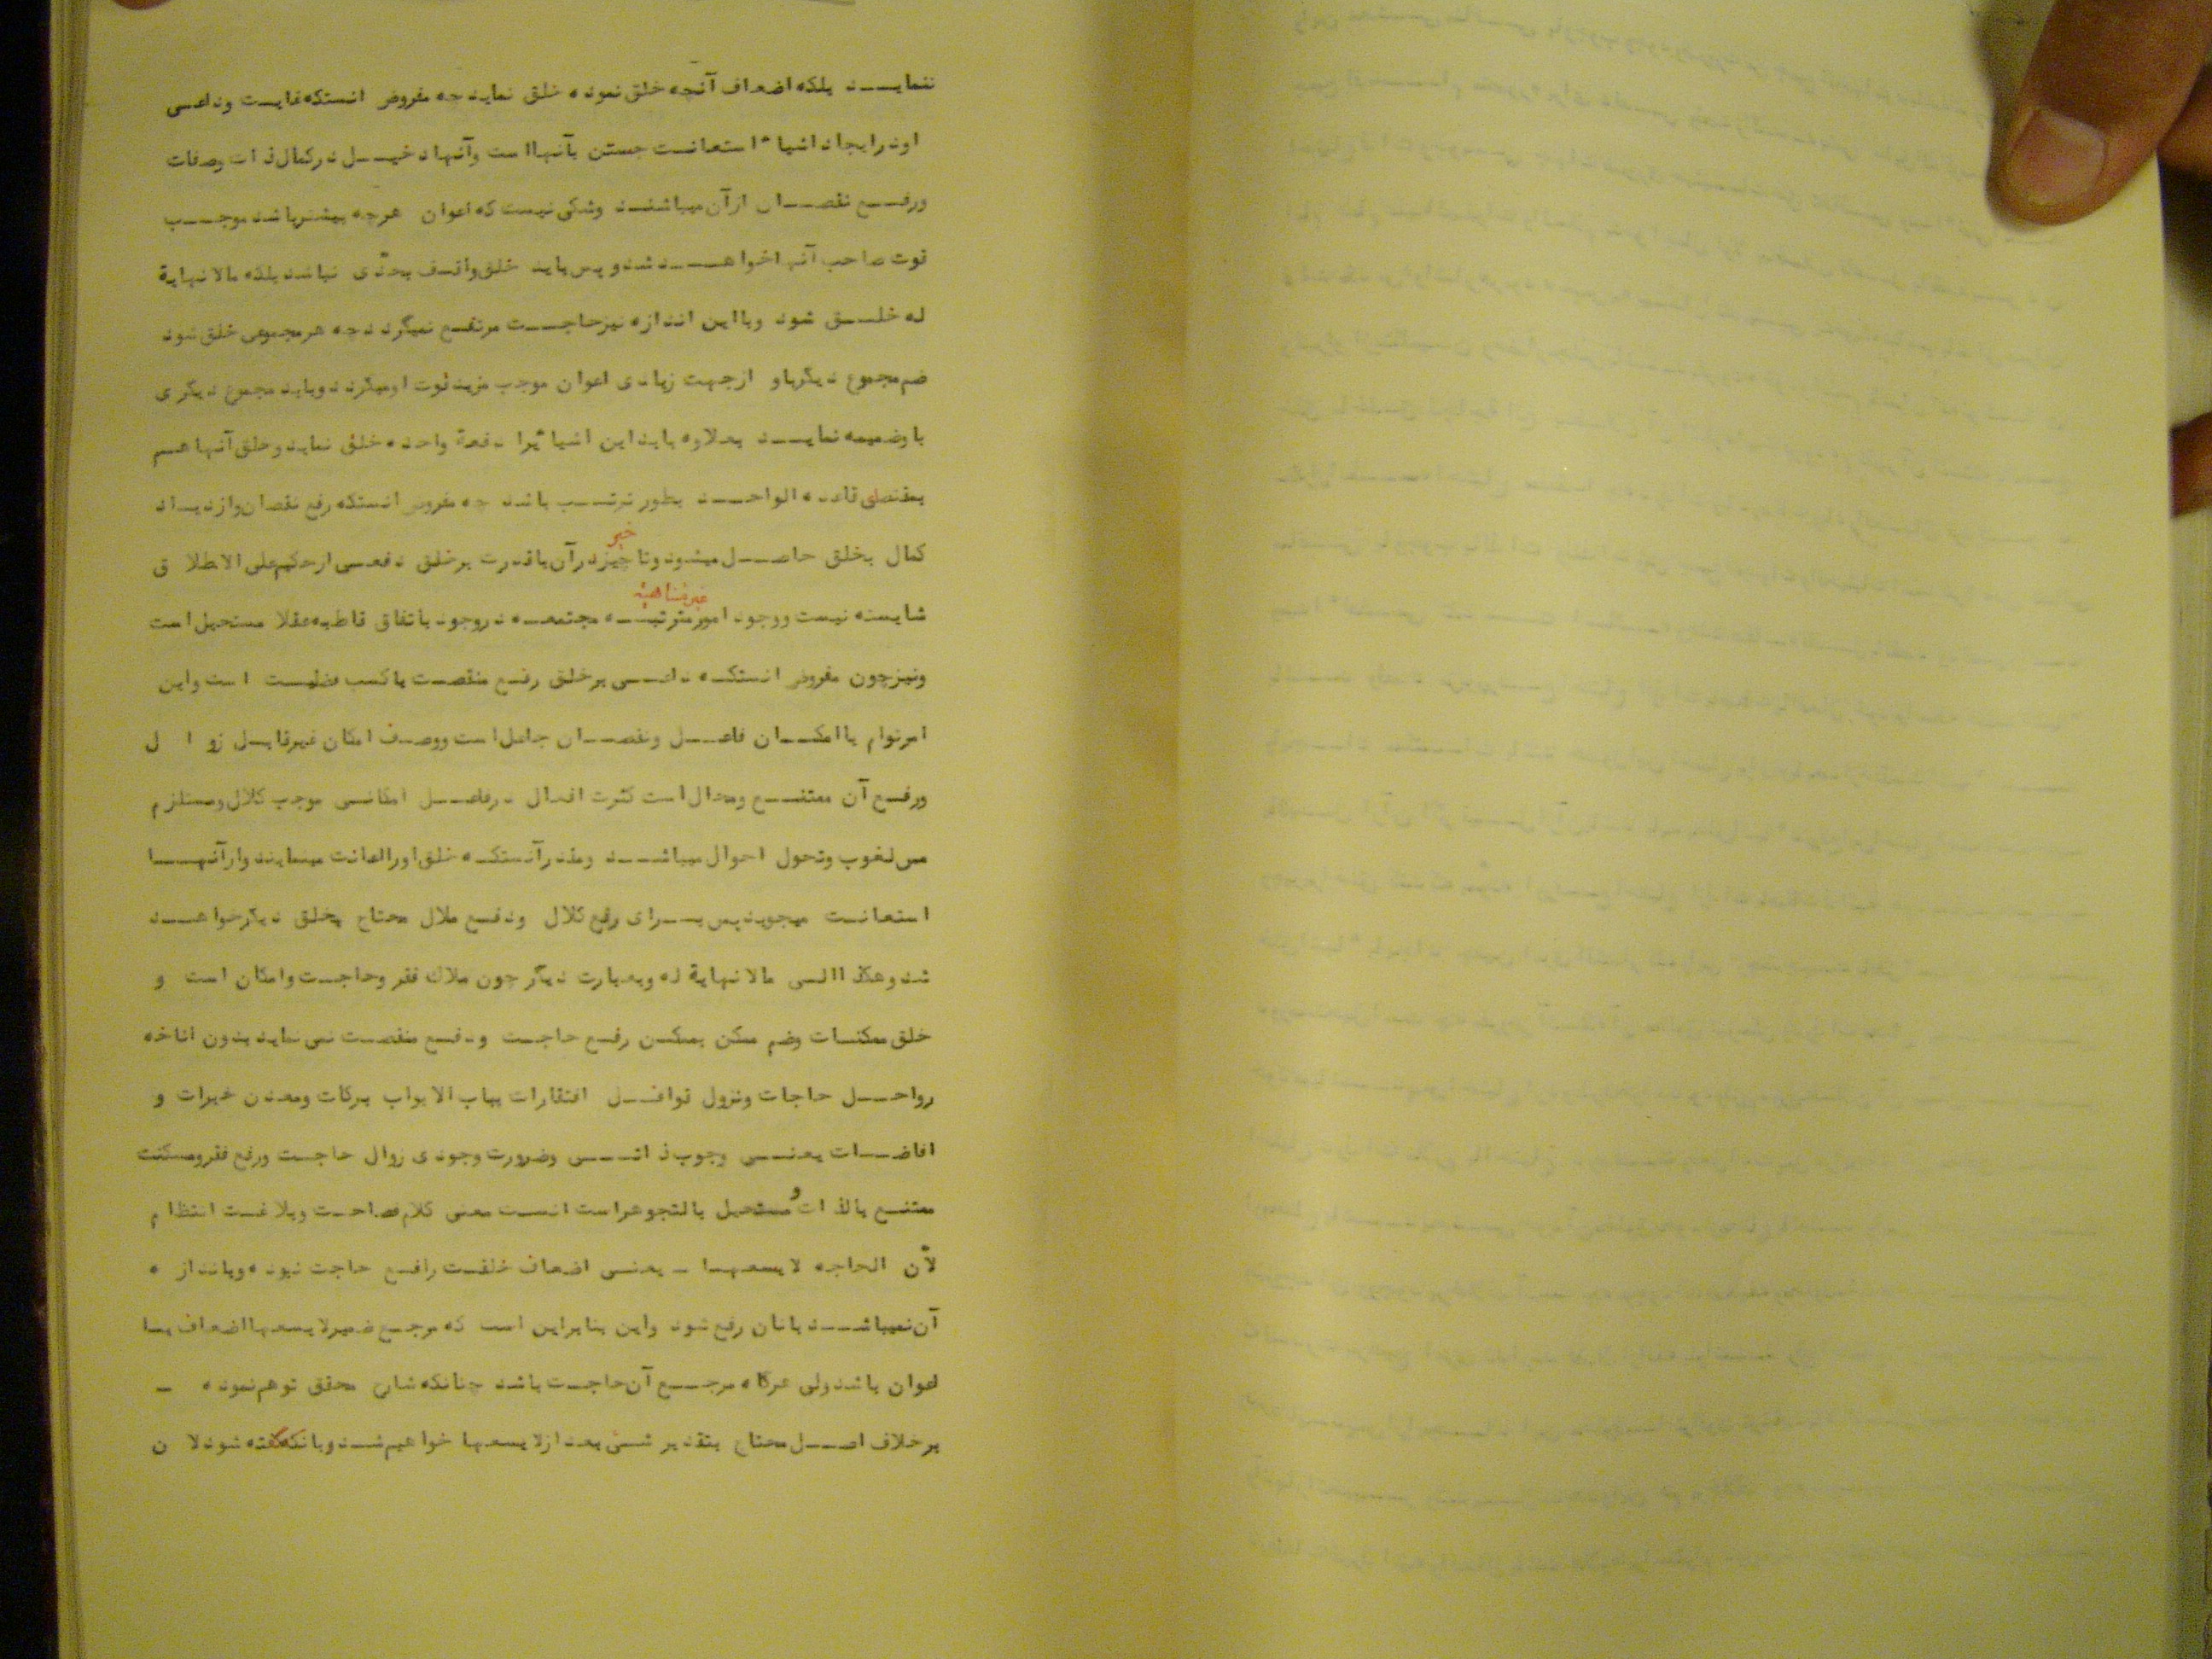 ننمایـــد بلکه اضعاف آنچه خلق نموده خلق نماید چه مفروض انستکه غایـت وداعـی
او در ایجاد اشیاء استعانـت جستن بآنها است وآنها دخیـــل در کمال ذات وصفات
ورفـــع نقصـــان ازآن میباشنـــد وشکی نیست که اعوان هرچه بیشتر باشد موجـــب
قوت صاحب آنها خواهـــد شد و پس باید خلق واقـف بحدّی نباشد بلکه مالانهایة
له خلـــق شود وبااین اندازه نیز حاجـــت مرتفـع نمیگردد چه هر مجموعی خلق شود
ضم مجموع دیگر باو ازجهت زیادی اعوان موجب مزید قوت او میگردد وباید مجموع دیگری
باوضمیمه نمایـــد بعلاوه باید این اشیاء را دفعة واحده خلق نماید وخلق آنها هـم
بمقتضای قاعده الواحـــد بطور ترتـــب باشد چه مفروض انستکه رفع نقصان وازدیاد
کمال بخلق حاصـــل میشود وتاخیر درآن باقدرت برخلق دفعـی ازحکیم علی الاطلاق
شایسته نیست ووجود امور مترتبـــه غیرمتناهیه مجتمعـــه در وجود باتفاق قاطبه عقلا مستحیل است
ونیز چون مفروض انستکـــه داعـــی برخلق رفـع منقصـت یاکسب فضلیـت است واین
امر توام باامکـــان فاعـــل ونقصـــان جاعل است ووصـف امکان غیرقابـــل زوال
ورفـــع آن ممتنـــع ومحال است کثرت افعال درفاعـــل امکانـی موجب کلال ومستلزم
مس لغوب وتحول احوال میباشـــد ومقدر آنستکـــه خلق او را اعانت مینمایند واز آنهـــا
استعانـت میجوید پس بـــرای رفع کلال ودفـع ملال محتاج بخلق دیگر خواهـــد
شد وهکذا الـی مالانهایة له وبعبارت دیگر چون ملاك فقر وحاجـت وامکان است و
خلق ممکنـــات وضم ممکن بممکـن رفـع حاجـت ودفـع منقصـت نمی نماید بدون اناخه
رواحـــل حاجات ونزول قوافـــل افتقارات بباب الابواب برکات ومعدن خیرات و
افاضـــات یعنـــی وجوب ذاتـــی وضرورت وجودی زوال حاجـت ورفع فقرومسکنت
ممتنـع بالذات و مستحیل بالتجوهر است انسـت معنی کلام فصاحـت وبلاغـت انتظام
لأن الحاجه لا یسعهـا ـ یعنـی اضعاف خلقـت رافـع حاجت نبوده وباندازه
آن نمیباشـــد باناْن رفع شود واین بنابراین است که مرجـع ضمیر لا یسعها اضعاف یـا
اعوان باشد ولی هرگاه مرجـــع آن حاجـت باشد چنانکه شارح محقق توهم نموده ـ
برخلاف اصـــل محتاج بتقدیر شئ بعد از لا یسعها خواهیم شـــد وبانکه گفته شود لان